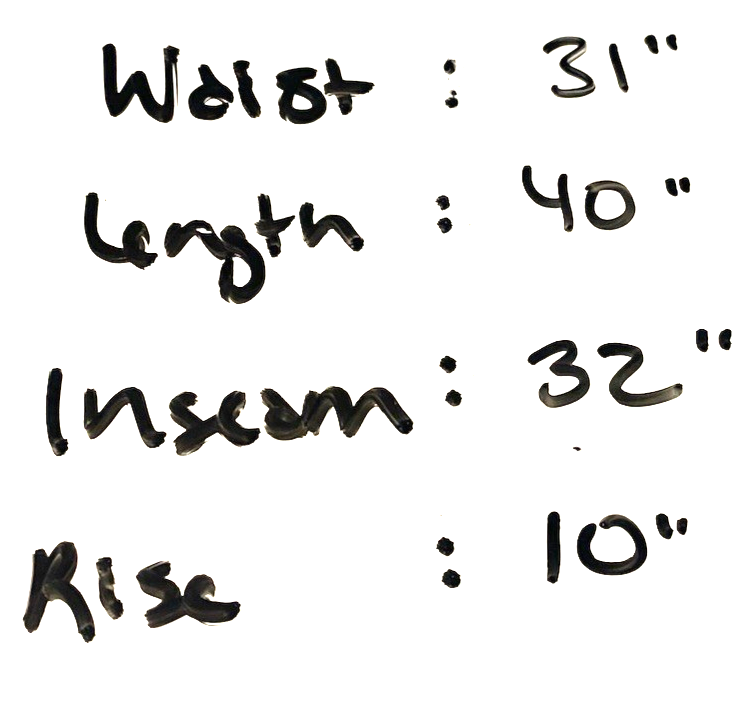 Waist : 31"
Length : 40"
Inseam : 32"
Rise : 10"